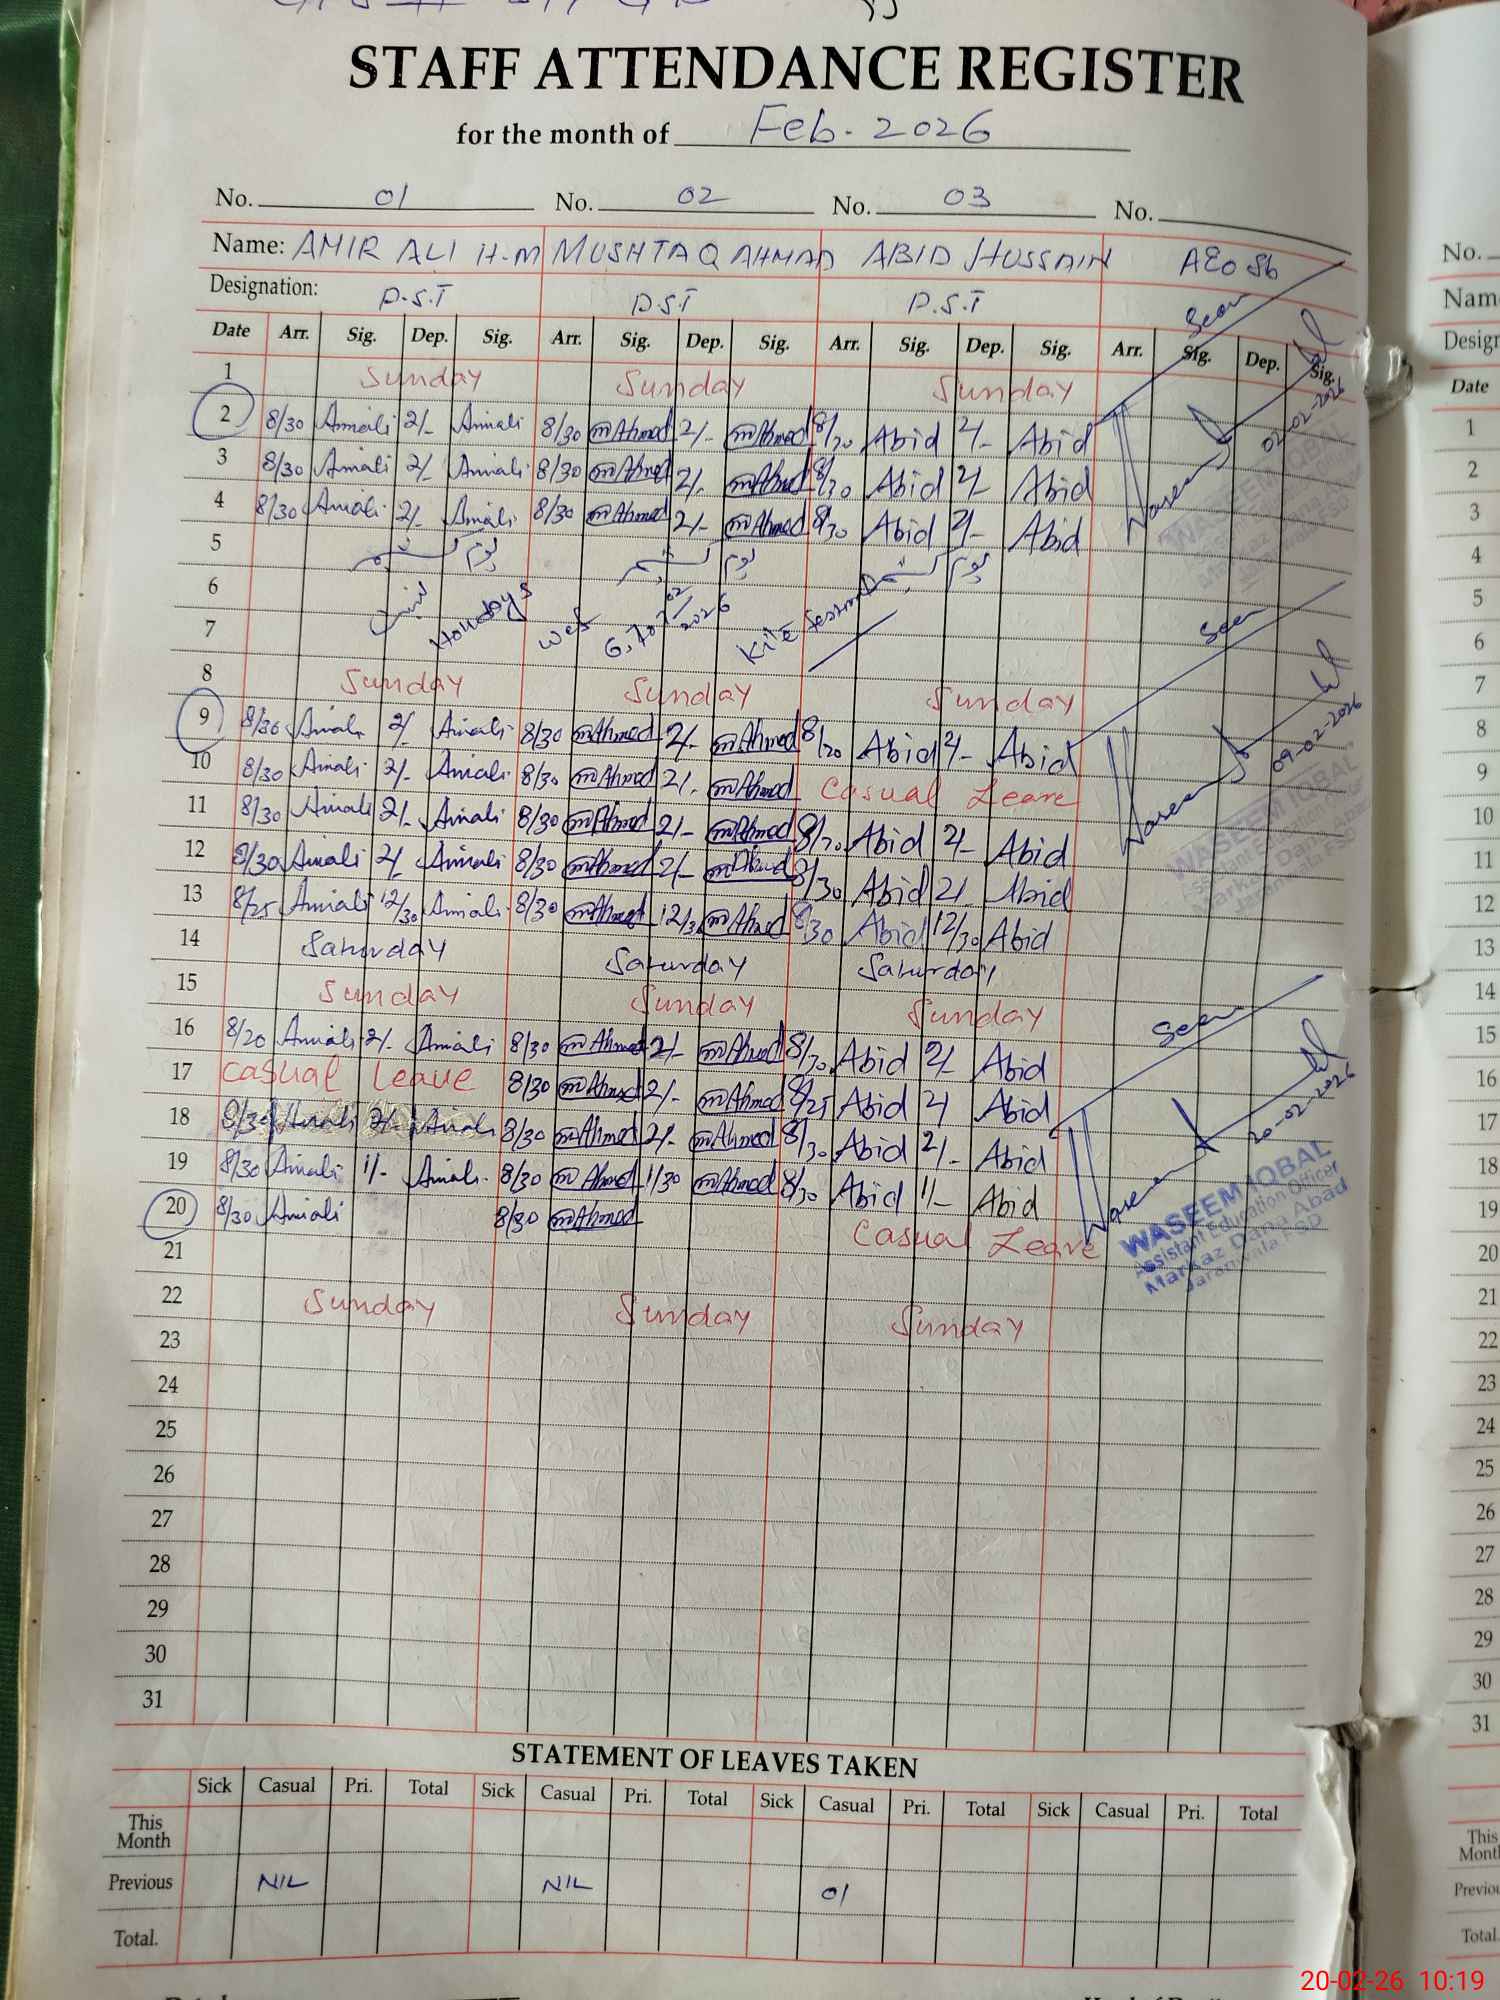 STAFF ATTENDANCE REGISTER
for the month of Feb. 2026
No. 01 No. 02 No. 03 No.
Name: AMIR ALI H.M MUSHTAQ AHMAD ABID HUSSAIN AEO Sb
Designation: P.S.T P.S.T P.S.T Seen
Date Arr. Sig. Dep. Sig. Arr. Sig. Dep. Sig. Arr. Sig. Dep. Sig. Arr. Sig. Dep. Sig.
1 Sunday Sunday Sunday
2 8/30 Amiali 2/- Amiali 8/30 mAhmed 2/- mAhmed 8/30 Abid 2/- Abid 02-02-2026
3 8/30 Amiali 2/- Amiali 8/30 mAhmed 2/- mAhmed 8/30 Abid 2/- Abid Waseem
4 8/30 Amiali 2/- Amiali 8/30 mAhmed 2/- mAhmed 8/30 Abid 2/- Abid WASEEM IQBAL
5 یوم کشمیر یوم کشمیر یوم کشمیر
6 Holidays wef 6,7 02/2026 Kite
7 Seen
8 Sunday Sunday Sunday
9 8/30 Amiali 2/- Amiali 8/30 mAhmed 2/- mAhmed 8/20 Abid 2/- Abid 09-02-2026
10 8/30 Amiali 2/- Amiali 8/30 mAhmed 2/- mAhmed Casual Leave
11 8/30 Amiali 2/- Amiali 8/30 mAhmed 2/- mAhmed 8/30 Abid 2/- Abid Waseem
12 8/30 Amiali 2/- Amiali 8/30 mAhmed 2/- mAhmed 8/30 Abid 2/- Abid WASEEM IQBAL
13 8/25 Amiali 12/30 Amiali 8/30 mAhmed 12/30 mAhmed 8/30 Abid 12/30 Abid
14 Saturday Saturday Saturday
15 Sunday Sunday Sunday
16 8/20 Amiali 2/- Amiali 8/30 mAhmed 2/- mAhmed 8/30 Abid 2/- Abid Seen
17 Casual Leave 8/30 mAhmed 2/- mAhmed 8/25 Abid 2/ Abid
18 8/30 Amiali 2/- Amiali 8/30 mAhmed 2/- mAhmed 8/30 Abid 2/- Abid 20-02-2026
19 8/30 Amiali 1/- Amiali 8/30 mAhmed 1/30 mAhmed 8/30 Abid 1/- Abid Waseem
20 8/30 Amiali 8/30 mAhmed Casual Leave
WASEEM IQBAL
Assistant Education Officer
Markaz Dana Abad
Jaranwala FSD
21
22 Sunday Sunday Sunday
23
24
25
26
27
28
29
30
31
STATEMENT OF LEAVES TAKEN
Sick Casual Pri. Total Sick Casual Pri. Total Sick Casual Pri. Total Sick Casual Pri. Total
This Month
Previous NIL NIL 01
Total.
No.
Date
1
2
3
4
5
6
7
8
9
10
11
12
13
14
15
16
17
18
19
20
21
22
23
24
25
26
27
28
29
30
31
This
Total.
20-02-26 10:19